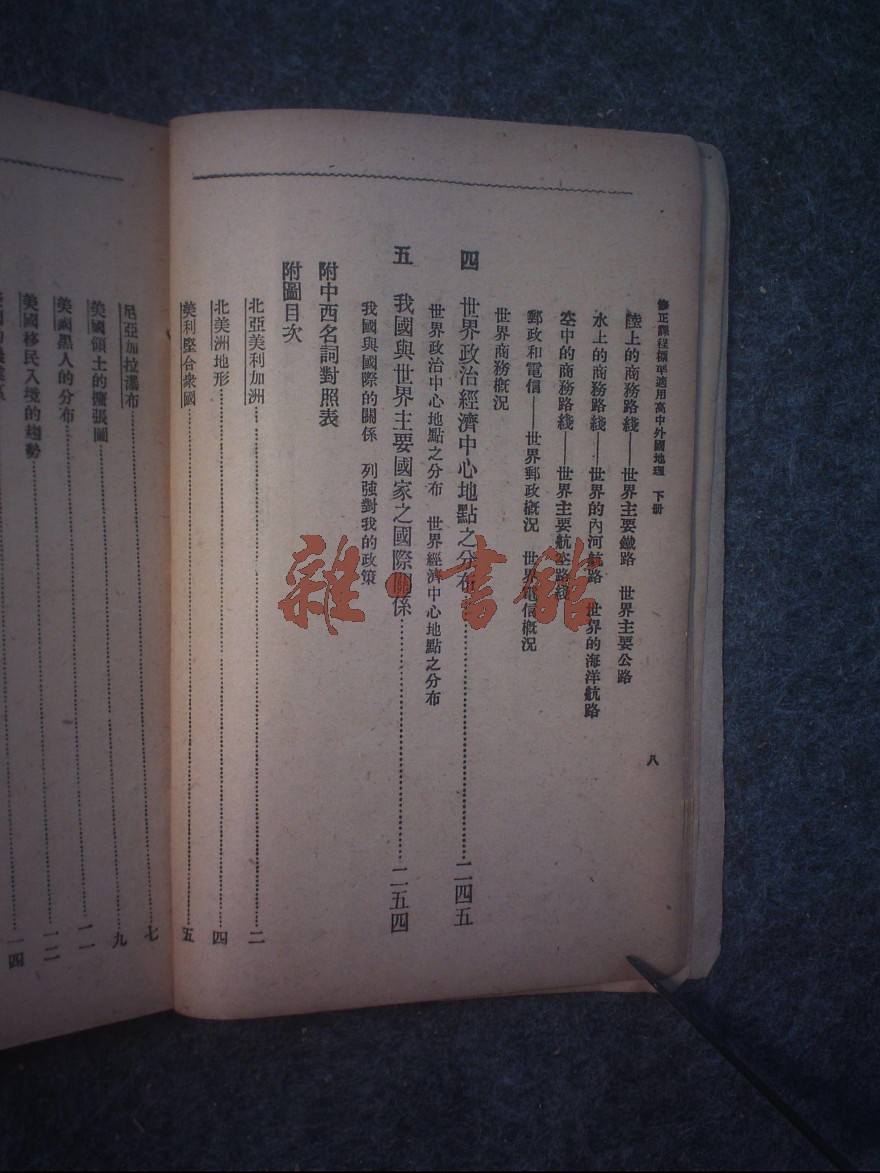 修正課程標準適用高中外國地理　下册
八
陸上的商務路綫——世界主要鐵路　世界主要公路
水上的商務路綫——世界的內河航路　世界的海洋航路
空中的商務路綫——世界主要航空路綫
郵政和電信——世界郵政概況　世界電信概況
世界商務概況
四　世界政治經濟中心地點之分布……二四五
世界政治中心地點之分布　世界經濟中心地點之分布
五　我國與世界主要國家之國際關係……二五四
我國與國際的關係　列強對我的政策
附中西名詞對照表
附圖目次
北亞美利加洲……二
北美洲地形……四
美利堅合衆國……五
尼亞加拉瀑布……七
美國領土的擴張圖……九
美國黑人的分布……一一
美國移民入境的趨勢……一二
一四
雜·書館